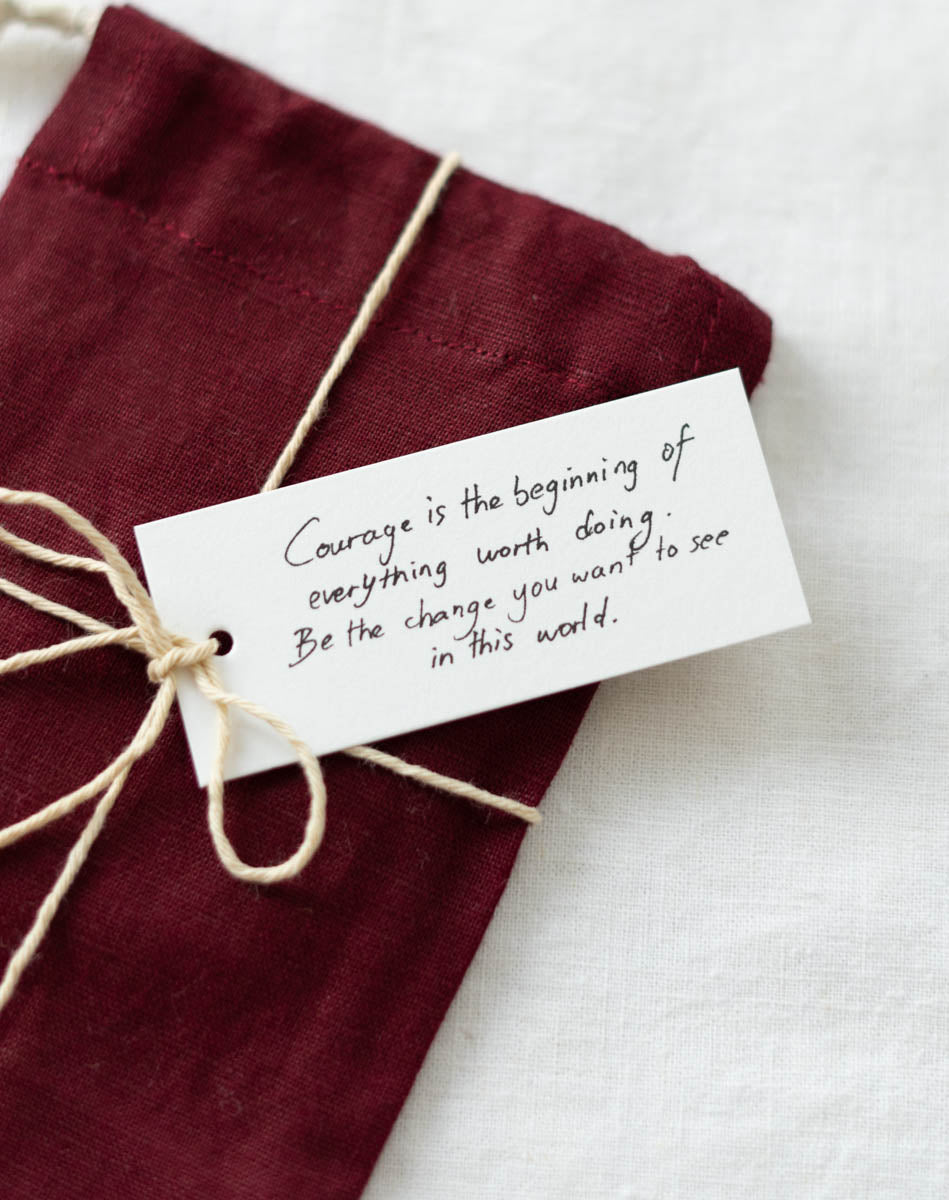 Courage is the beginning of
everything worth doing.
Be the change you want to see
in this world.